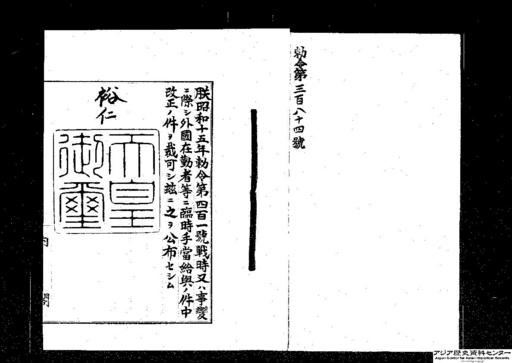 勅令第三百八十四號
朕昭和十五年勅令第四百一號戰時又ハ事變
ニ際シ外國在勤者等ニ臨時手當給與ノ件中
改正ノ件ヲ裁可シ玆ニ之ヲ公布セシム
裕仁
天皇
御璽
内閣
アジア歴史資料センター
Japan Center for Asian Historical Records